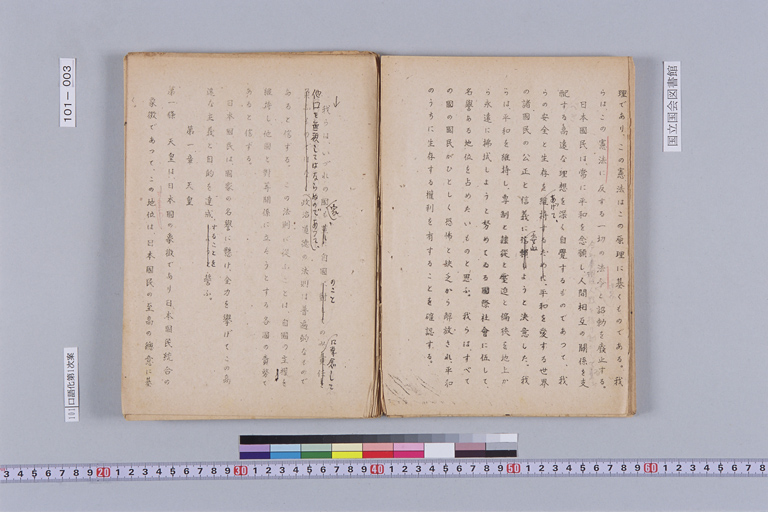 理であり、この憲法はこの原理に基くものである。我
らはこの憲法に反する一切の法令と詔勅を廃止する。
日本國民は、常に平和を念願し、人間相互の関係を支
配する高遠な理想を深く自覺するものであつて、我
らの安全と生存を維持するために、平和を愛する世界
あげて、
の諸國民の公正と信義に
しようと決意した。我
らは平和を維持し、専制と隷從と壓迫と偏狹を地上か
ら永遠に拂拭しようと努めてゐる國際社會に伍して、
名譽ある地位を占めたいものと思ふ。我らはすべて
の國の國民がひとしく恐怖と缺乏から解放され、平和
のうちに生存する權利を有することを確認する。
我らは、いづれの國も
自國
のこと
に專念して
他國を無視してはならぬのであつて、
政治道徳の法則は普遍的なもので
あると信ずる。この法則に從ふことは、自國の主權を
維持し他國と對等関係に立たうとする各國の責務で
あると信ずる。
日本國民は、國家の名譽に懸け全力を擧げてこの高
遠な主義と目的を達成
することを
誓ふ。
第一章 天皇
第一條 天皇は、日本國の象徴であり日本國民統合の
象徴であつて、この地位は日本國民の至高の總意に基
101-003
国立国会図書館
口語化第1次案
3 4 5 6 7 8 9 20 1 2 3 4 5 6 7 8 9 30 1 2 3 4 5 6 7 8 9 40 1 2 3 4 5 6 7 8 9 50 1 2 3 4 5 6 7 8 9 60 1 2 3 4 5 6 7 8